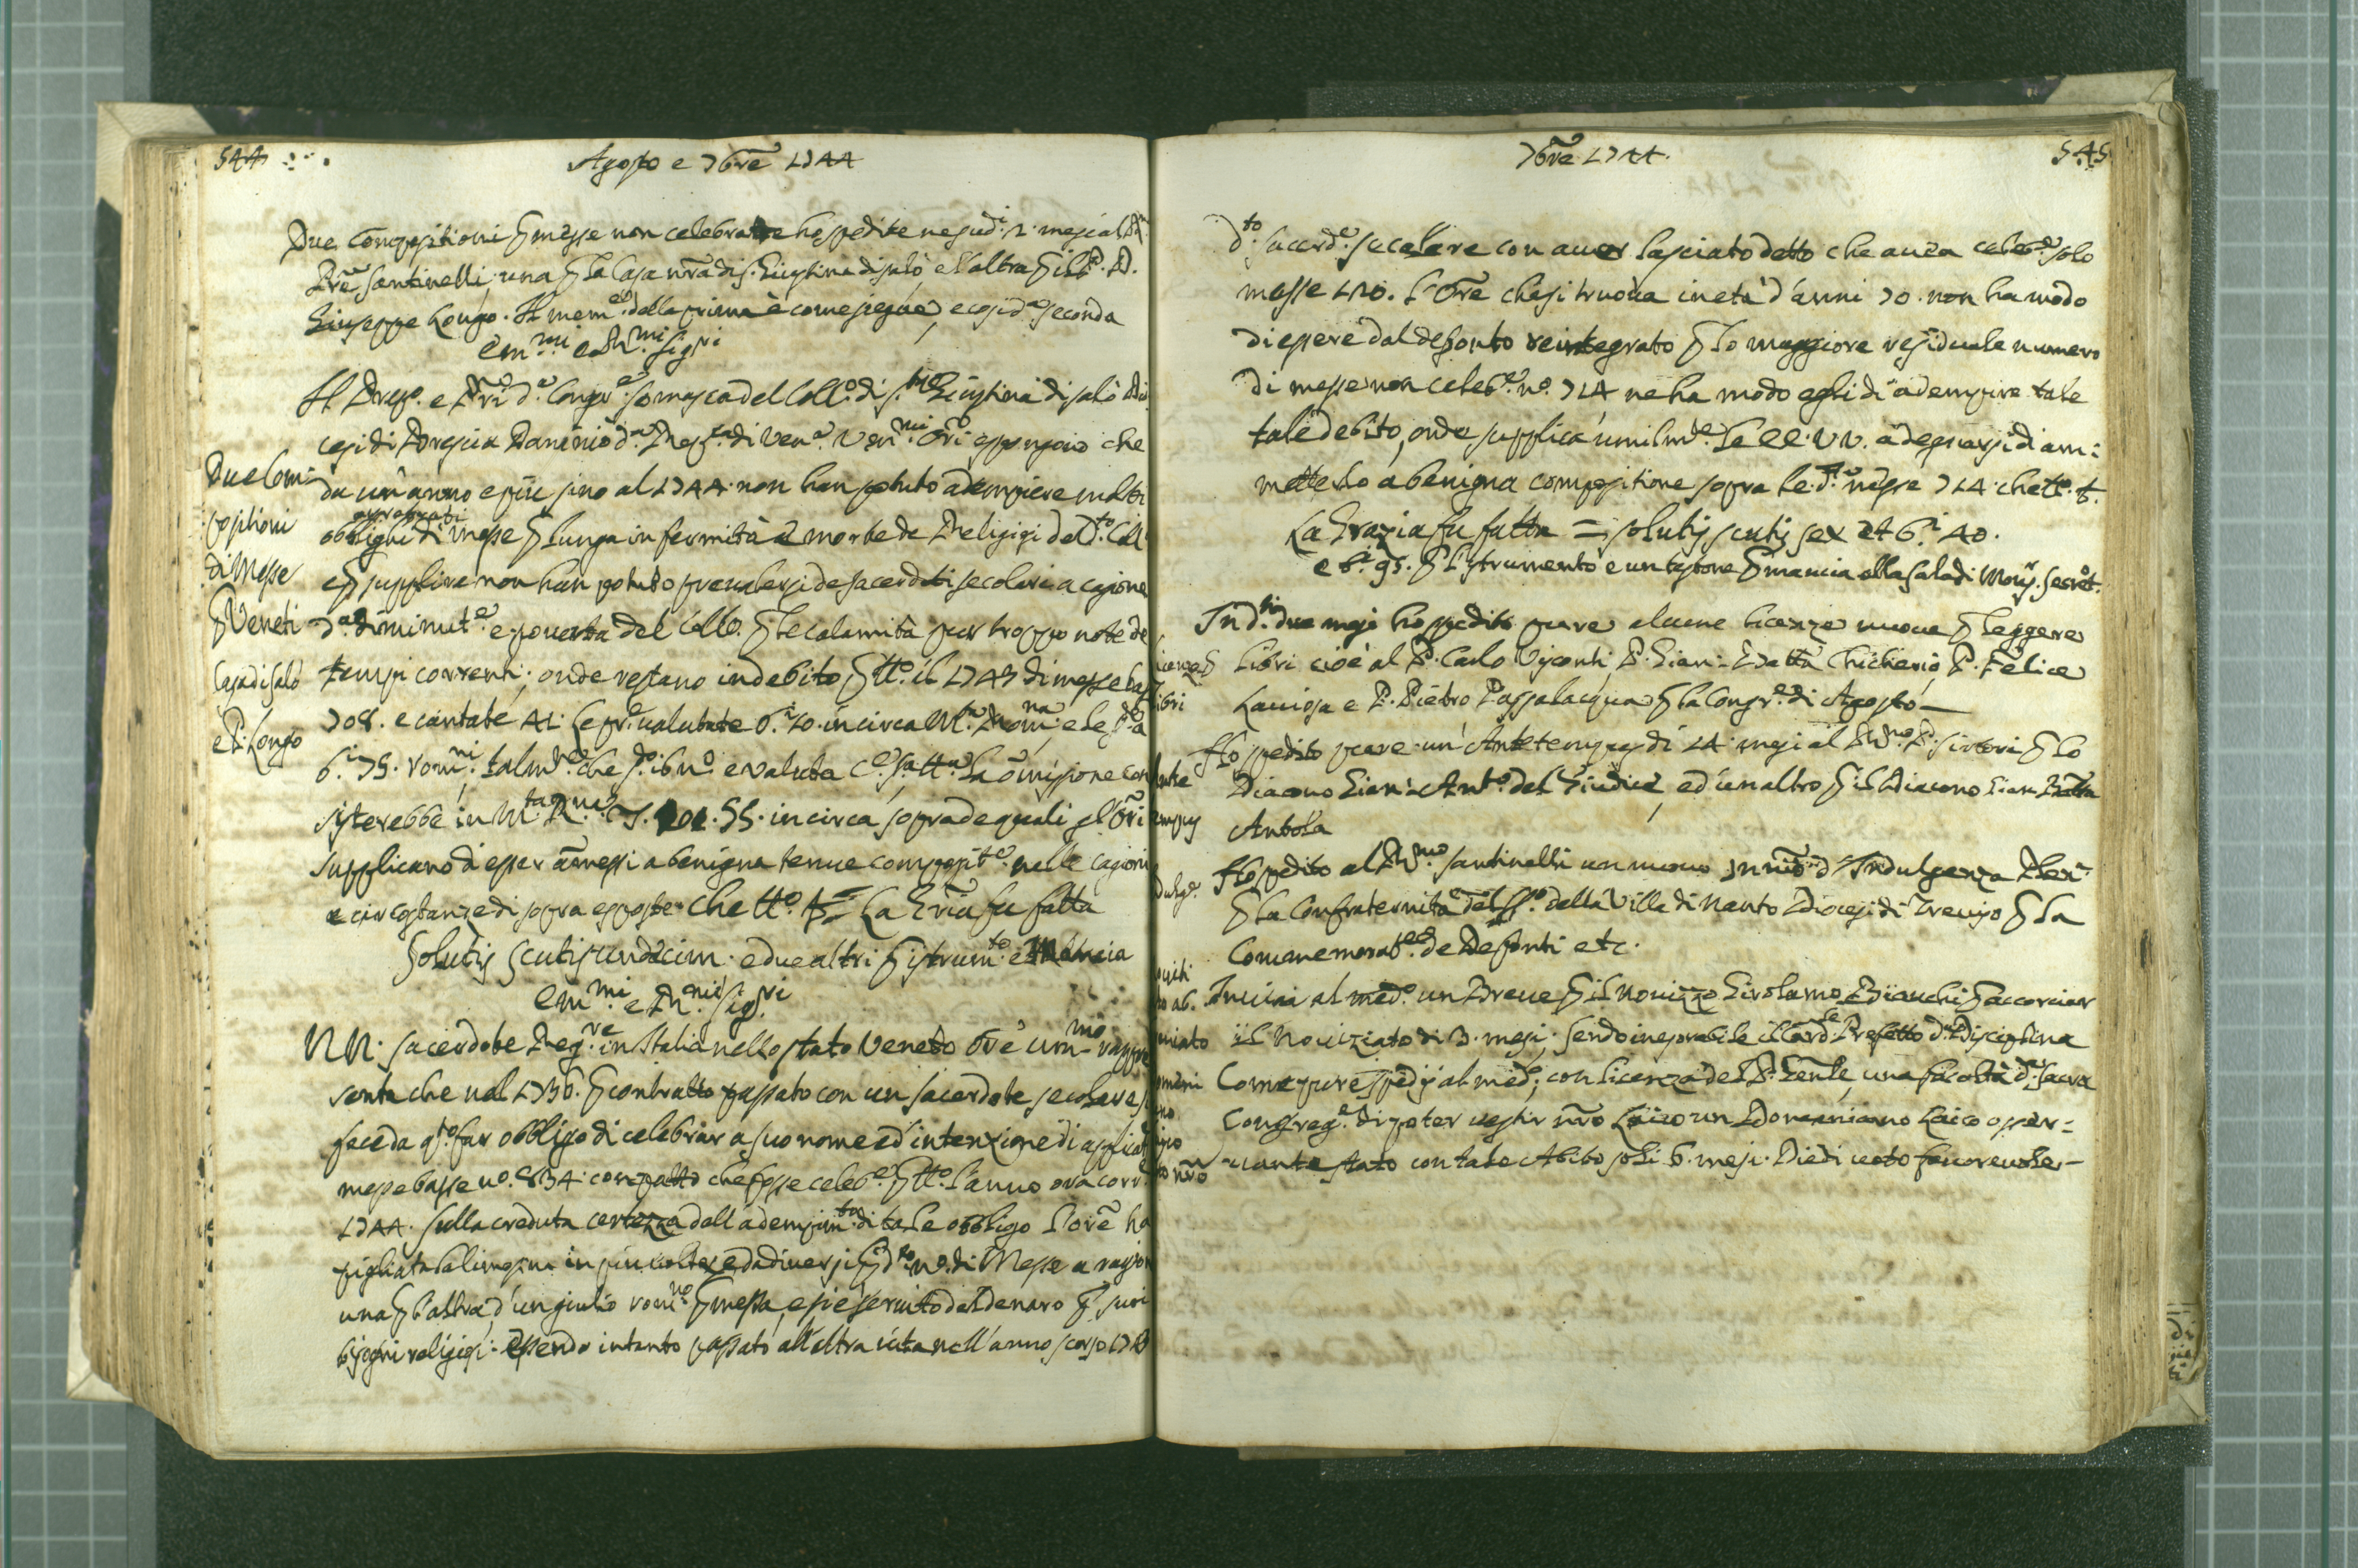 544
Agosto e 7bre 1744
Due Compositioni p messe non celebrate ho spedite ne sud.i 2. mesi al
Pre Santinelli; una p la Casa nra di S. Giustina di salò e l'altra p il P. D.
Giuseppe Longo. Il mem.e della prima è come siegue, e così d.a seconda
Em.mi e R.mi Sig.ri
Il Prep.o e Pri d.a Congr.e Somasca del Coll.o di S.ta Giustina di salò Dio
cesi di Brescia Dominio d.a Rep.ca di Ven.a Um.mi Ori espongono che
da un'anno e più sino al 1744. non han potuto adempiere molti
aggravati
obblighi di messe p lunga infermità e morte de Religiosi del d.to Coll.
e p supplire non han potuto prevalersi de sacerdoti secolari a cagione
d.a diminut.e e povertà del Collo. p le calamità pur troppo note de
tempi correnti; onde restano in debito p tt.o il 1743 di messe bas
708. e cantate 41.
6.i 75. rom.ni talm.te che
sisterebbe in M.ta R.na 101.55. in circa sopra de quali gl'Ori
supplicano d'esser amessi a benigna tenue composit.e nelle cagioni
e circostanze di sopra esposte. Che tt.o La Gria fu fatta
Solutis scutis undecim. e due altri p istrum.to e Mancia
Due Com=
positioni
di Messe
p Veneti
Casa di Salò
e P. Longo
Em.mi e R.mi Sig.ri
NN. sacerdote Reg.re in Italia nello stato Veneto Ore um.mo rappre
senta che nel 1736. p contratto passato con un sacerdote secolare si
fece da q.sto far obbligo di celebrar a suo nome ed intenzione di applicat
messe basse no. 834. con patto che fosse celeb.e p tt.o l'anno ora corr.e
1744. Sulla creduta certezza dell'adempim.to di tale obbligo l'ore ha
pigliata la limosina in più volte, e da diversi p d.to n.o di Messe a ragion
una p l'altra d'un giulio rom.no p messa, e si è servito del denaro p suoi
bisogni religiosi. Essendo intanto passato all'altra vita nell'anno scorso 174
7bre 1744.
545
d.to sacerd.e secolare con aver lasciato detto che avea celeb.e solo
messe 120. l'Ore che si truova in età d'anni 70. non ha modo
di essere dal defonto reintegrato p lo maggiore residuale numero
di messe non celeb.e n.o 714 ne ha modo egli di adempire tale
tale debito, onde supplica umilm.te le EE. VV. a degnarsi di am:
metterlo a benigna compositione sopra le d.e messe 714. che tt.o
La Grazia fu fatta = solutis scutis sex et 6.i 40.
e b.i 95. p l'istrumento e un testone p mancia alla sala di Mons.r Secret.
In d.ti due mesi ho spedite pure alcune licenze nuove p leggere
libri cioè al P. Carlo Visconti P. Gian: Batta Chicherio, P. Felice
Laviosa e P. Pietro Passalacqua p la Congr.e di Agosto
Ho spedito pure un'Antetempus di 14. mesi al R.mo P. Sirtori p lo
Diacono Gian: Ant.o del Giudice, ed un altro p il Diacono Gian Batta
Antola
Ho spedito al R.mo Santinelli un nuovo d'Indulgenza Plen:
p la Confraternita del SS.o della Villa di Nanto Diocesi di Trevigo p la
Commemorat.e de Defonti etc.
Inviai al med.o un Breve p il Novizzo Girolamo Bianchi p accorciar
il Noviziato di 3. mesi; sendo inesorabile il Card.le Prefetto d.a Disciplina
Come pure spedij al med.o; con licenza del P. Gen.le, una facoltà d.a Sacra
Congreg.e di poter vestir nro Laico un Domenicano Laico osser=
vante stato con tale Abito soli 6. mesi. Diedi voto favorevole